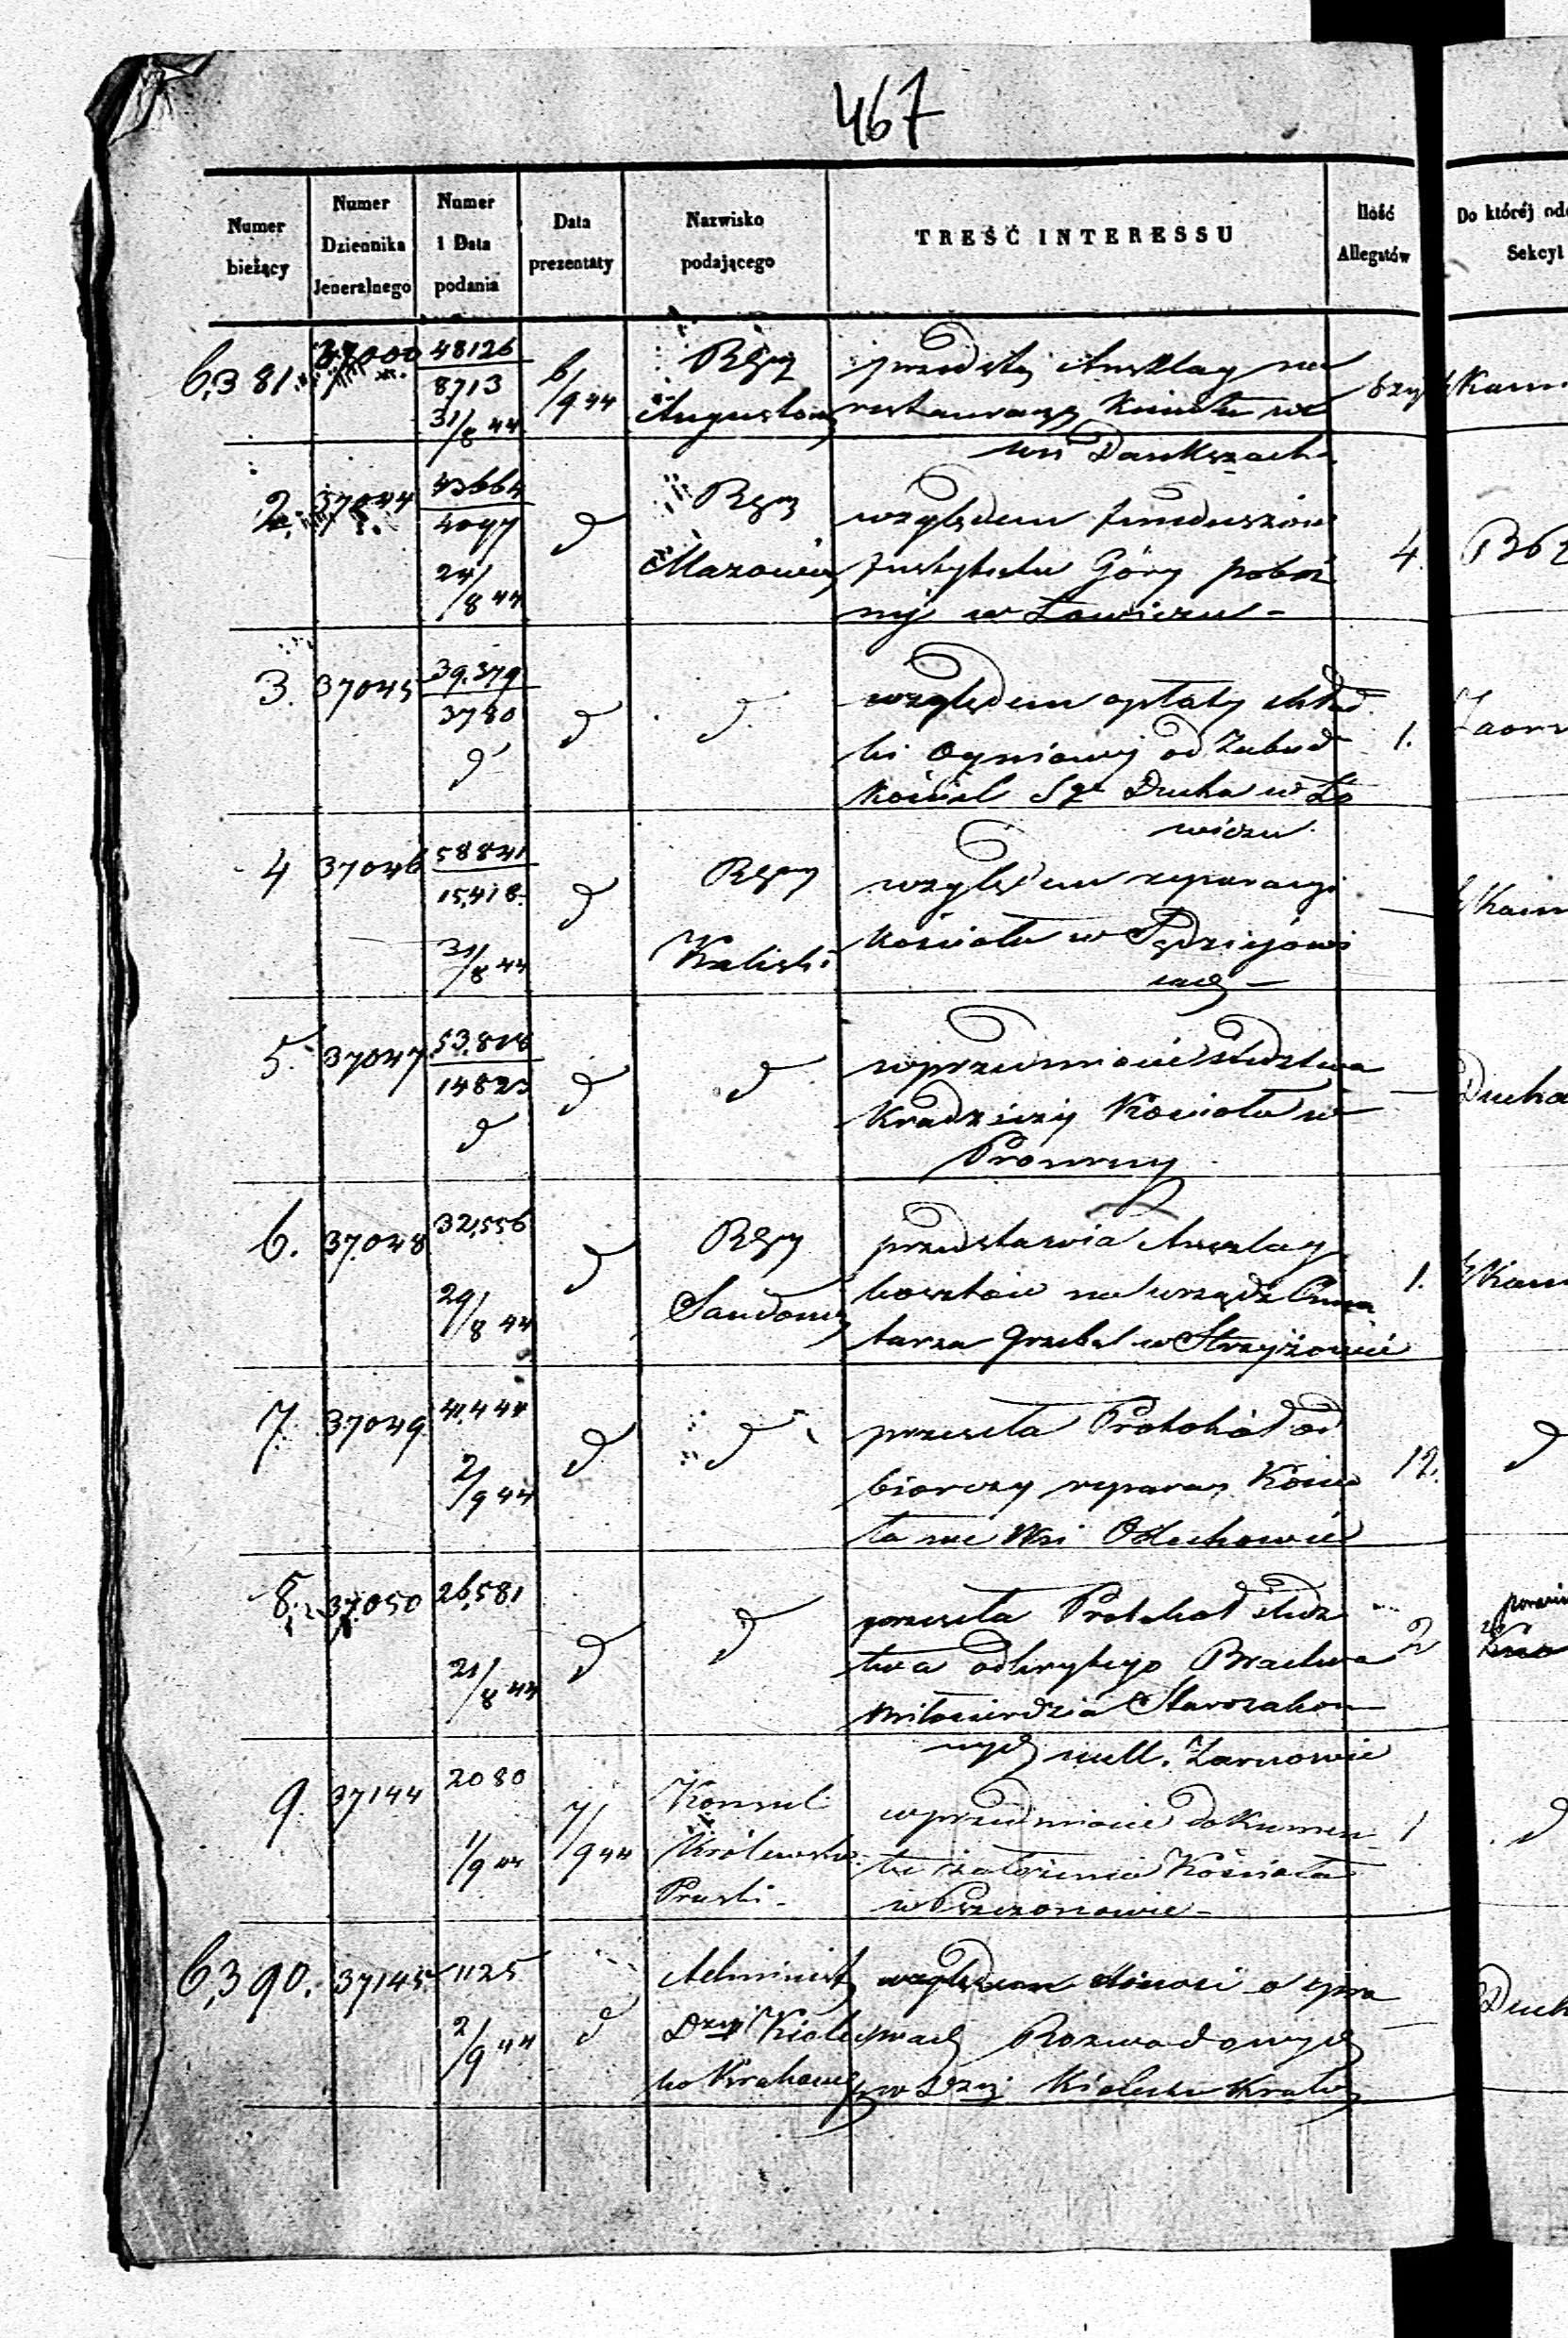 467
Numer bieżący
Numer Dziennika Jeneralnego
Numer i Data podania
Data prezentaty
Nazwisko podającego
TREŚĆ INTERESSU
Ilość Allegatów
Do któréj
Sekcyi
6,381. 37000 48126 / 8713 31/8 44 6/9 44
Rząd Augustow
przedsta Anszlag na
restauracyę Kościoła we
wsi
2. 37044 43664 / 4097 24/8 44 d
Rząd Mazowie 4.
względem funduszów
Instytutu Góry poboż
néj w Łowiczu -
3. 37045 39.379 / 3780 d d d 1.
względem opłaty skład
ki Ogniowéj od Zabud
Kościel Sgo Ducha w Ło
wiczu
4 37046 58841 / 15,418. 31/8 44 d
Rząd Kaliski —
względem reparacyi
Kościoła w Sędziejowi
cach —
5. 37047 53.818 / 14823 d d d — Ducha
w przedmiocie śledztwa
Kradzieży Kościoła w
6. 37.048 32,556 29/8 44 d
Rząd Sandom 1.
przedstawia Anszlag
kosztów na urządz Cmę
tarza Grzebal w Strzyżowie
7. 37049 41,444 2/9 44 d d 12. d
przesyła Protokół od
biorczy reparac Kościo
ła we Wsi
8. 37.050 26,581 21/8 44 d d 2
przesyła Protokół śledz
twa odkrytego Bractwa
Miłosierdzia Starozakon
nych w M. Żarnowie
9. 37144 2080 1/9 44 7/9 44
Konsul
Królewsko
Pruski - 1 d
w przedmiocie dokumen
tu założenia Kościoła
w Pszczonowie -
6,390. 37145. 1125 2/9 44 d
Administ
Dyecyi Kielec
ko Krakows —
względem o spra
wach Rozwodowych
w Dyej Kielecko Krako